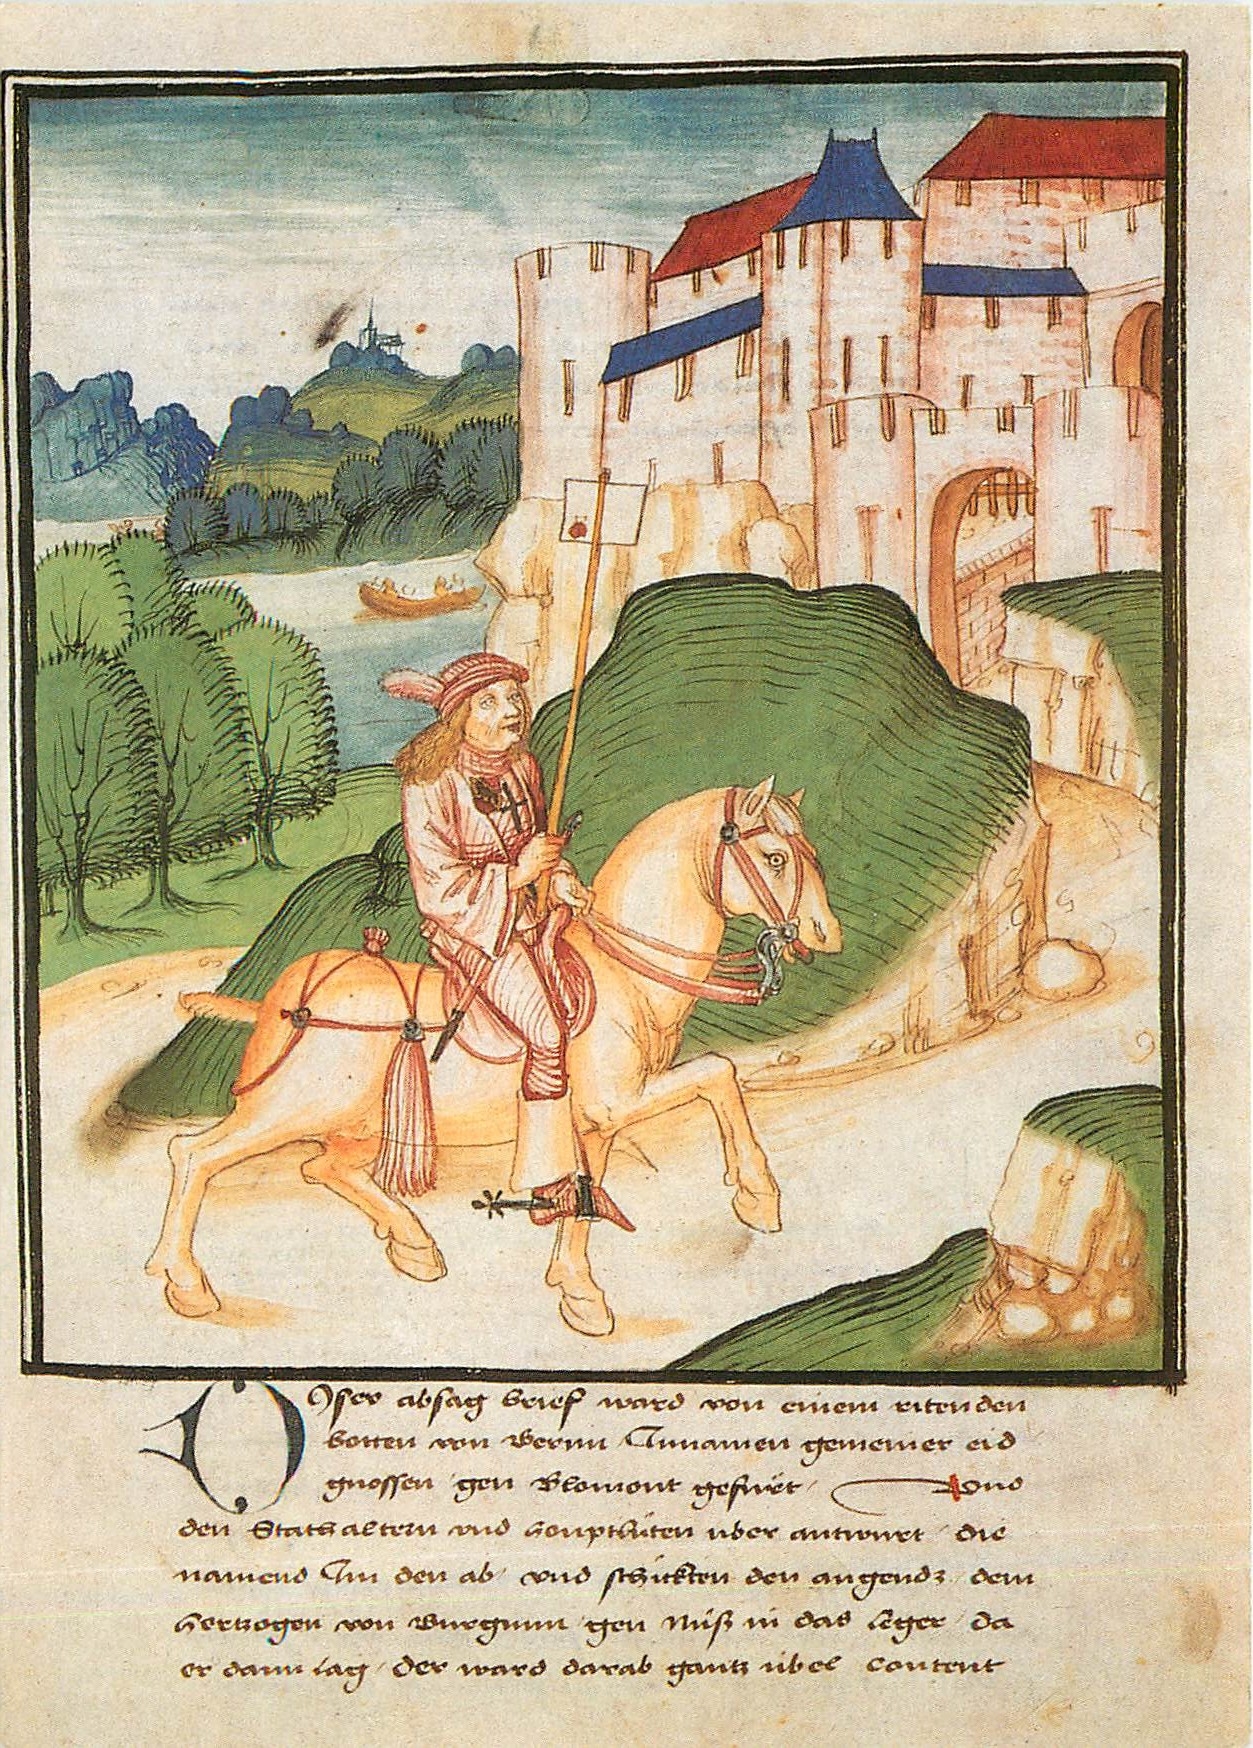 Diser absag brief ward von einem ritenden
botten von Bernn Innamen gemeiner eid
gnossen gen Blomont gefürt Und
den Stathaltern vnd houptlüten über antwurt die
namend Im den ab vnd schickten den angends dem
hertzogen von Burgunn gen Nüß in das leger da
er dann lag der ward darab gantz übel content